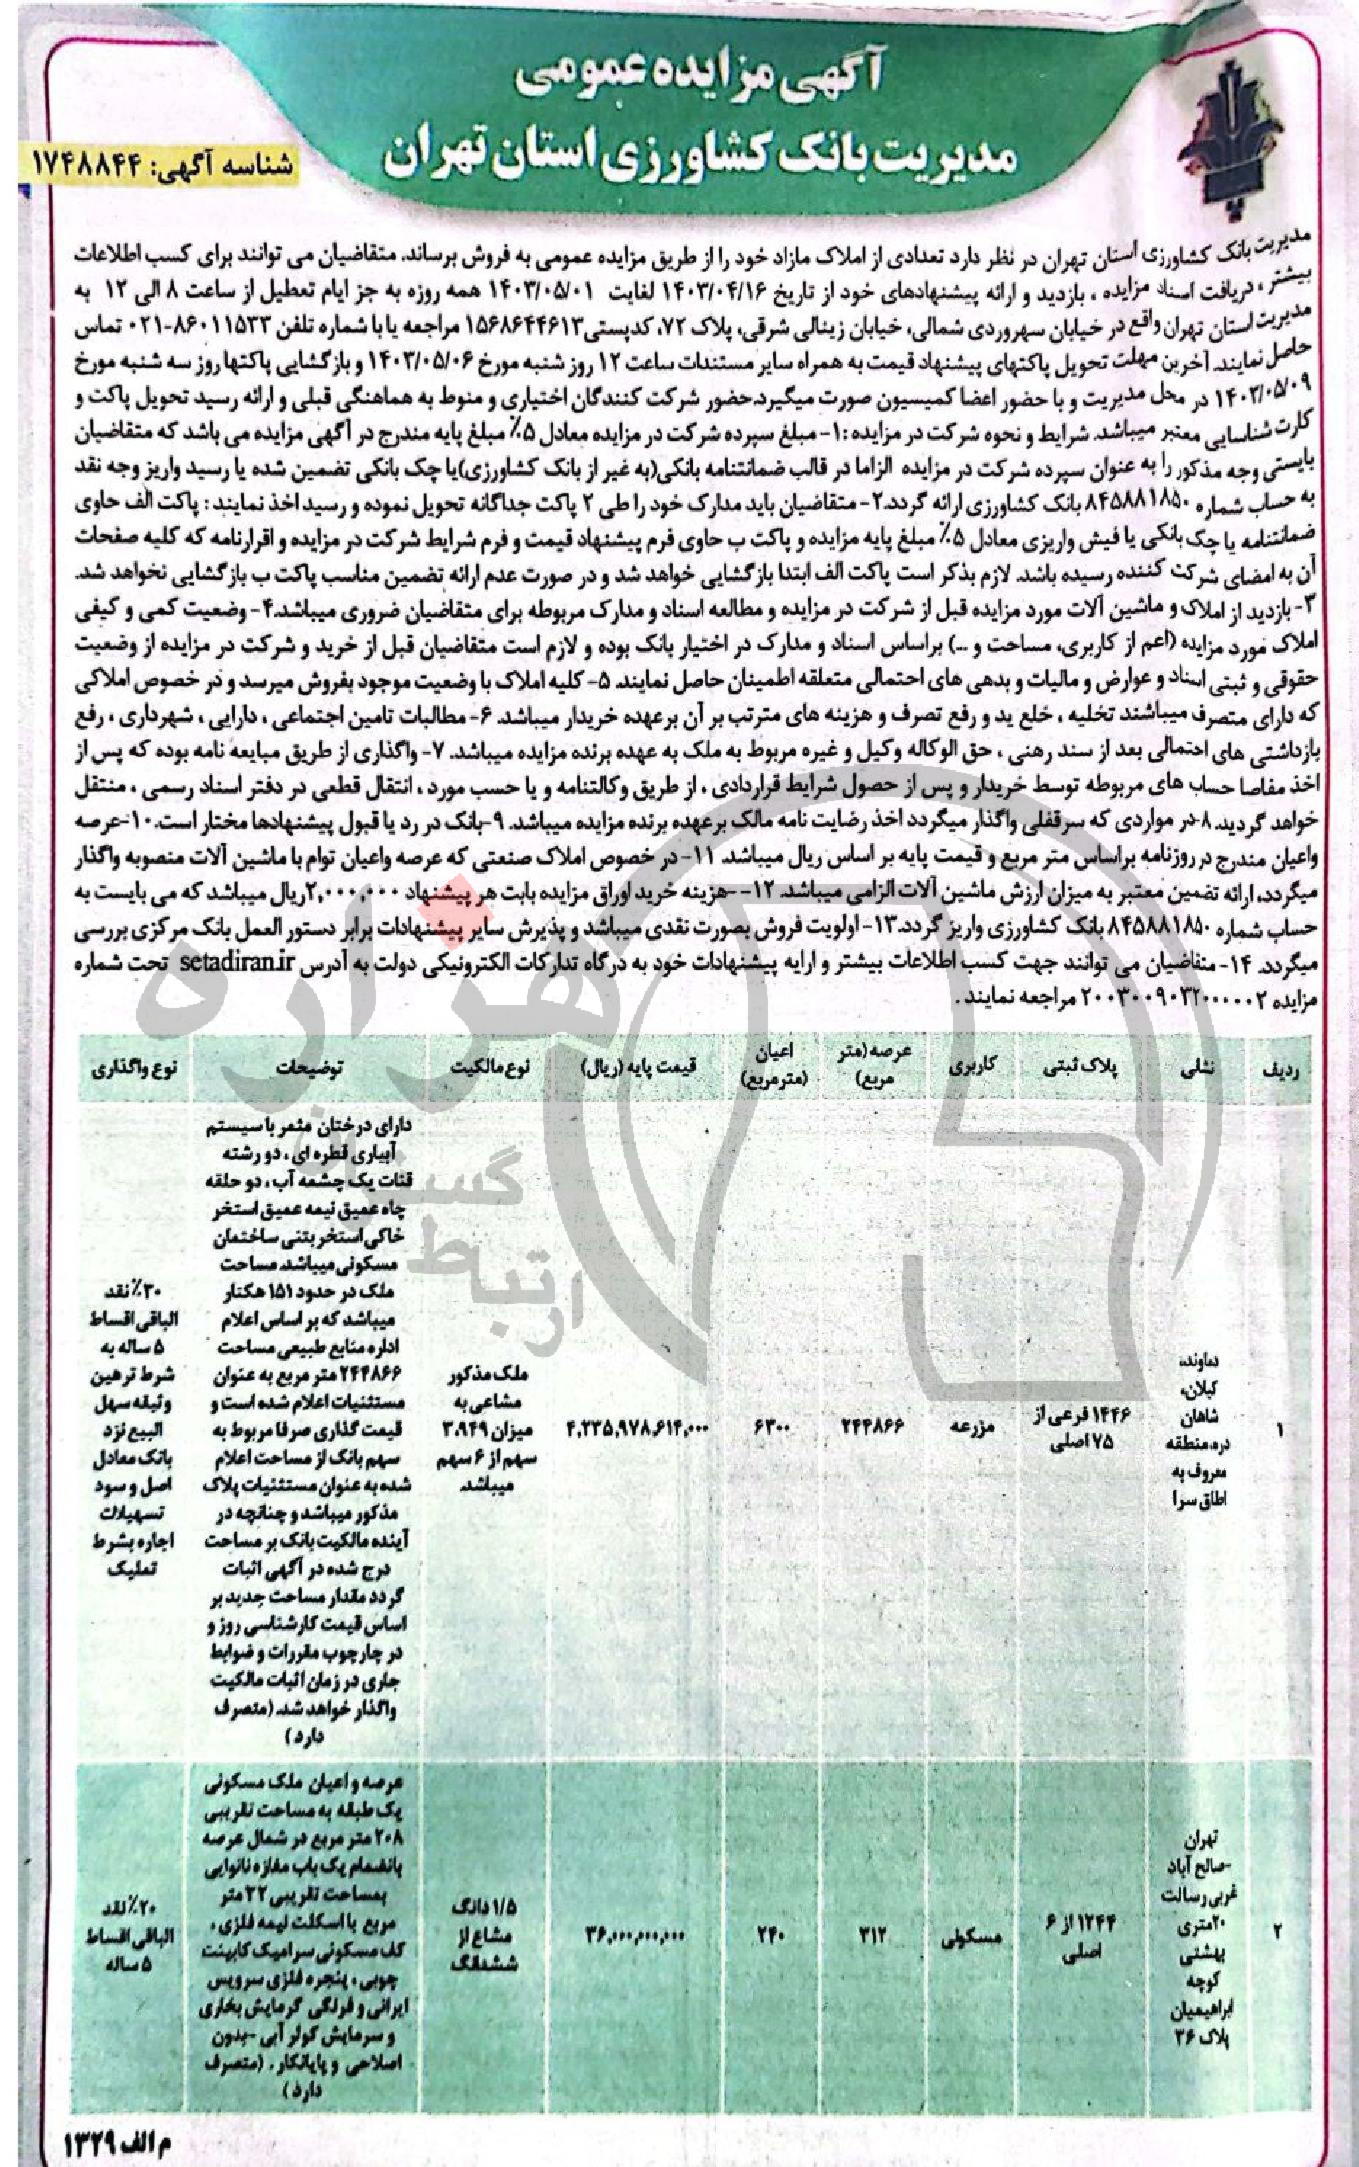 آگهی مزایده عمومی
مدیریت بانک کشاورزی استان تهران
شناسه آگهی: ۱۷۴۸۸۴۴
مدیریت بانک کشاورزی استان تهران در نظر دارد تعدادی از املاک مازاد خود را از طریق مزایده عمومی به فروش برساند. متقاضیان می توانند برای کسب اطلاعات
بیشتر ، دریافت اسناد مزایده ، بازدید و ارائه پیشنهادهای خود از تاریخ ۱۴۰۳/۰۴/۱۶ لغایت ۱۴۰۳/۰۵/۰۱ همه روزه به جز ایام تعطیل از ساعت ۸ الی ۱۲ به
مدیریت استان تهران واقع در خیابان سهروردی شمالی، خیابان زینالی شرقی، پلاک ۷۲، کدپستی ۱۵۶۸۶۴۴۶۱۳ مراجعه یا با شماره تلفن ۸۶۰۱۱۵۳۳-۰۲۱ تماس
حاصل نمایند. آخرین مهلت تحویل پاکتهای پیشنهاد قیمت به همراه سایر مستندات ساعت ۱۲ روز شنبه مورخ ۱۴۰۳/۰۵/۰۶ و بازگشایی پاکتها روز سه شنبه مورخ
۱۴۰۳/۰۵/۰۹ در محل مدیریت و با حضور اعضا کمیسیون صورت میگیرد.حضور شرکت کنندگان اختیاری و منوط به هماهنگی قبلی و ارائه رسید تحویل پاکت و
کارت شناسایی معتبر میباشد. شرایط و نحوه شرکت در مزایده :۱- مبلغ سپرده شرکت در مزایده معادل ۵٪ مبلغ پایه مندرج در آگهی مزایده می باشد که متقاضیان
بایستی وجه مذکور را به عنوان سپرده شرکت در مزایده الزاما در قالب ضمانتنامه بانکی(به غیر از بانک کشاورزی)یا چک بانکی تضمین شده یا رسید واریز وجه نقد
به حساب شماره ۸۴۵۸۸۱۸۵۰ بانک کشاورزی ارائه گردد.۲- متقاضیان باید مدارک خود را طی ۲ پاکت جداگانه تحویل نموده و رسید اخذ نمایند : پاکت الف حاوی
ضمانتنامه یا چک بانکی یا فیش واریزی معادل ۵٪ مبلغ پایه مزایده و پاکت ب حاوی فرم پیشنهاد قیمت و فرم شرایط شرکت در مزایده و اقرارنامه که کلیه صفحات
آن به امضای شرکت کننده رسیده باشد. لازم بذکر است پاکت الف ابتدا بازگشایی خواهد شد و در صورت عدم ارائه تضمین مناسب پاکت ب بازگشایی نخواهد شد.
۳- بازدید از املاک و ماشین آلات مورد مزایده قبل از شرکت در مزایده و مطالعه اسناد و مدارک مربوطه برای متقاضیان ضروری میباشد.۴- وضعیت کمی و کیفی
املاک مورد مزایده (اعم از کاربری، مساحت و ...) براساس اسناد و مدارک در اختیار بانک بوده و لازم است متقاضیان قبل از خرید و شرکت در مزایده از وضعیت
حقوقی و ثبتی اسناد و عوارض و مالیات و بدهی های احتمالی متعلقه اطمینان حاصل نمایند. ۵- کلیه املاک با وضعیت موجود بفروش میرسد و در خصوص املاکی
که دارای متصرف میباشند تخلیه ، خلع ید و رفع تصرف و هزینه های مترتب بر آن برعهده خریدار میباشد. ۶- مطالبات تامین اجتماعی ، دارایی ، شهرداری ، رفع
بازداشتی های احتمالی بعد از سند رهنی ، حق الوکاله وکیل و غیره مربوط به ملک به عهده برنده مزایده میباشد. ۷- واگذاری از طریق مبایعه نامه بوده که پس از
اخذ مفاصا حساب های مربوطه توسط خریدار و پس از حصول شرایط قراردادی ، از طریق وکالتنامه و یا حسب مورد ، انتقال قطعی در دفتر اسناد رسمی ، منتقل
خواهد گردید. ۸-در مواردی که سرقفلی واگذار میگردد اخذ رضایت نامه مالک برعهده برنده مزایده میباشد. ۹-بانک در رد یا قبول پیشنهادها مختار است.۱۰-عرصه
واعیان مندرج در روزنامه براساس متر مربع و قیمت پایه بر اساس ریال میباشد. ۱۱- در خصوص املاک صنعتی که عرصه واعیان توام با ماشین آلات منصوبه واگذار
میگردد، ارائه تضمین معتبر به میزان ارزش ماشین آلات الزامی میباشد. ۱۲--هزینه خرید اوراق مزایده بابت هر پیشنهاد ۲,۰۰۰,۰۰۰ریال میباشد که می بایست به
حساب شماره ۸۴۵۸۸۱۸۵۰ بانک کشاورزی واریز گردد.۱۳- اولویت فروش بصورت نقدی میباشد و پذیرش سایر پیشنهادات برابر دستور العمل بانک مرکزی بررسی
میگردد. ۱۴- متقاضیان می توانند جهت کسب اطلاعات بیشتر و ارایه پیشنهادات خود به درگاه تدارکات الکترونیکی دولت به آدرس setadiran.ir تحت شماره
مزایده ۲۰۰۳۰۰۹۰۳۲۰۰۰۰۰۲ مراجعه نمایند .
ردیف نشانی پلاک ثبتی کاربری عرصه(متر مربع) اعیان (مترمربع) قیمت پایه (ریال) نوع مالکیت توضیحات نوع واگذاری
۱
دماوند،
کیلان،
شاهان
دره،منطقه
معروف به
اطاق سرا
۱۴۴۶ فرعی از
۷۵ اصلی
مزرعه
۲۴۴۸۶۶
۶۳۰۰
۴,۲۳۵,۹۷۸,۶۱۴,۰۰۰
ملک مذکور
مشاعی به
میزان ۳.۹۴۹
سهم از ۶ سهم
میباشد.
دارای درختان مثمر با سیستم
آبیاری قطره ای ، دو رشته
قنات یک چشمه آب ، دو حلقه
چاه عمیق نیمه عمیق استخر
خاکی استخر بتنی ساختمان
مسکونی میباشد. مساحت
ملک در حدود ۱۵۱ هکتار
میباشد که بر اساس اعلام
اداره منابع طبیعی مساحت
۲۴۴۸۶۶ متر مربع به عنوان
مستثنیات اعلام شده است و
قیمت گذاری صرفا مربوط به
سهم بانک از مساحت اعلام
شده به عنوان مستثنیات پلاک
مذکور میباشد و چنانچه در
آینده مالکیت بانک بر مساحت
درج شده در آگهی اثبات
گردد مقدار مساحت جدید بر
اساس قیمت کارشناسی روز و
در چارچوب مقررات و ضوابط
جاری در زمان اثبات مالکیت
واگذار خواهد شد. (متصرف
دارد)
۳۰٪ نقد
الباقی اقساط
۵ ساله به
شرط ترهین
وثیقه سهل
البیع نزد
بانک معادل
اصل و سود
تسهیلات
اجاره بشرط
تملیک
۲
تهران
-صالح آباد
غربی رسالت
۲۰متری
بهشتی
کوچه
ابراهیمیان
پلاک ۳۶
۱۲۴۴ از ۶
اصلی
مسکونی
۳۱۲
۲۴۰
۳۶,۰۰۰,۰۰۰,۰۰۰
۱/۵ دانگ
مشاع از
ششدانگ
عرصه و اعیان ملک مسکونی
یک طبقه به مساحت تقریبی
۲۰۸ متر مربع در شمال عرصه
بانضمام یک باب مغازه نانوایی
بمساحت تقریبی ۳۲ متر
مربع با اسکلت نیمه فلزی ،
کف مسکونی سرامیک کابینت
چوبی ، پنجره فلزی سرویس
ایرانی و فرنگی گرمایش بخاری
و سرمایش کولر آبی -بدون
اصلاحی و پایانکار . (متصرف
دارد)
۲۰٪ نقد
الباقی اقساط
۵ ساله
م الف ۱۳۲۹
هزاره
گستر
ارتباط